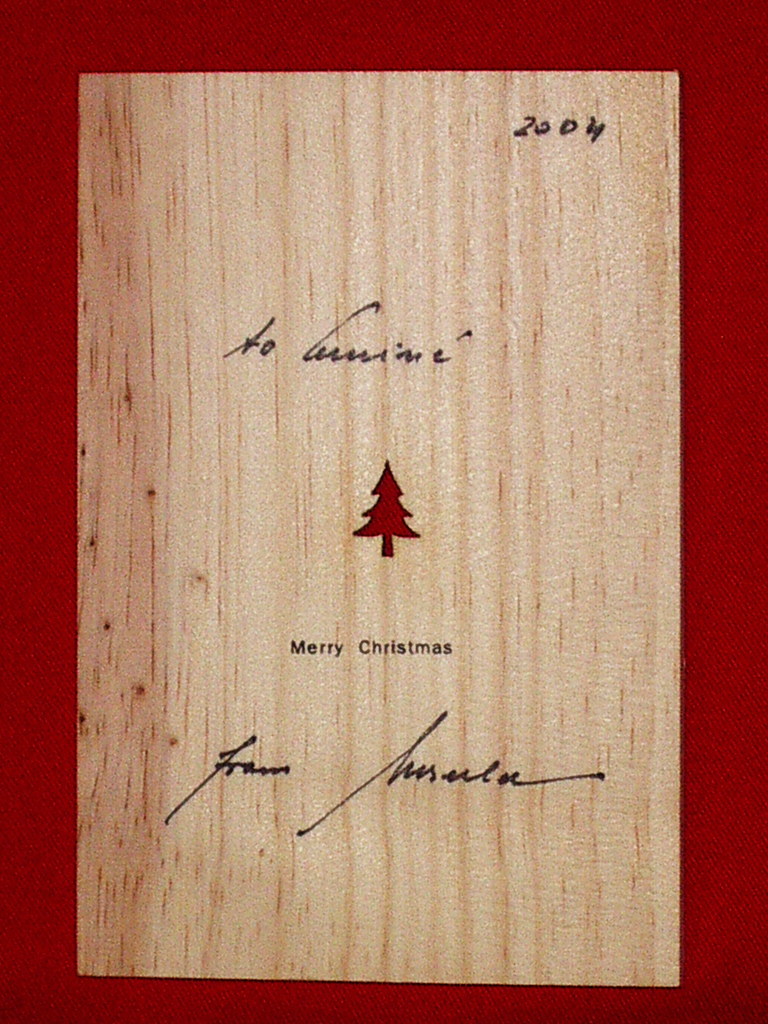 2004
to
Merry Christmas
from Ursula